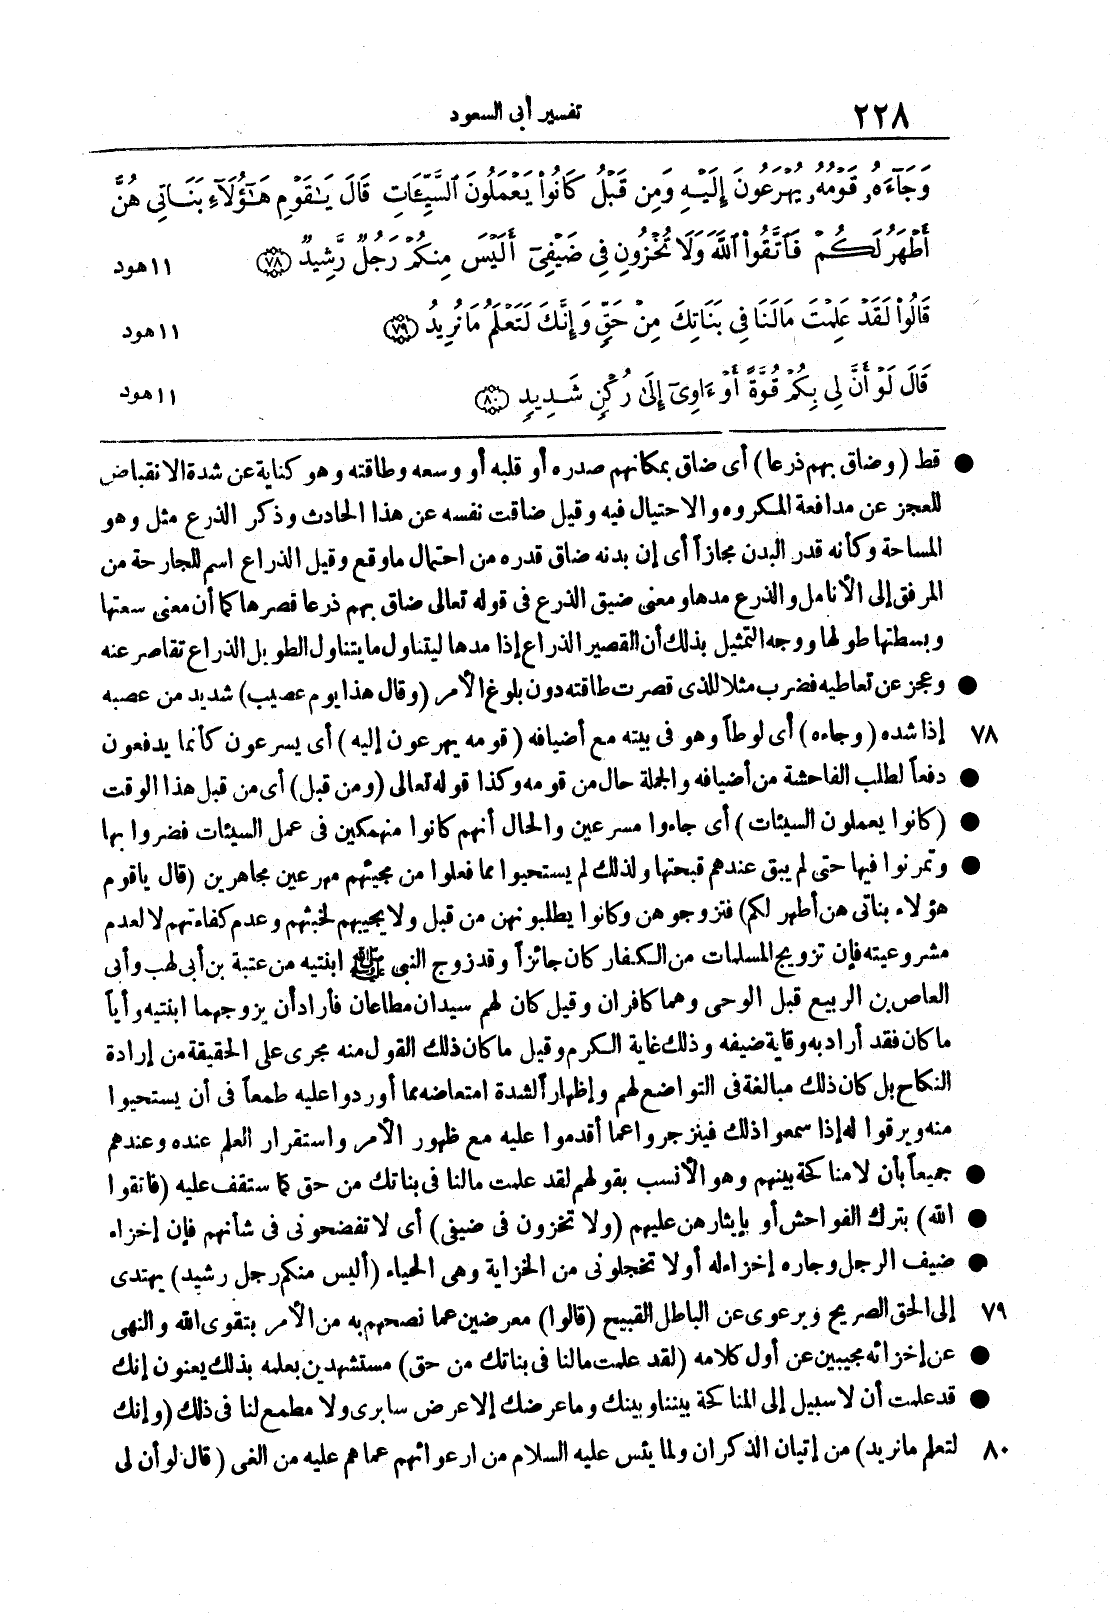 ٢٢٨ تفسير أبى السعود
وَجَآءَهُۥ قَوْمُهُۥ يُهْرَعُونَ إِلَيْهِ وَمِن قَبْلُ كَانُوا۟ يَعْمَلُونَ ٱلسَّيِّـَٔاتِ قَالَ يَـٰقَوْمِ هَـٰٓؤُلَآءِ بَنَاتِى هُنَّ
أَطْهَرُ لَكُمْ فَٱتَّقُوا۟ ٱللَّهَ وَلَا تُخْزُونِ فِى ضَيْفِىٓ أَلَيْسَ مِنكُمْ رَجُلٌ رَّشِيدٌ ﴿٧٨﴾ ١١ هود
قَالُوا۟ لَقَدْ عَلِمْتَ مَا لَنَا فِى بَنَاتِكَ مِنْ حَقٍّ وَإِنَّكَ لَتَعْلَمُ مَا نُرِيدُ ﴿٧٩﴾ ١١ هود
قَالَ لَوْ أَنَّ لِى بِكُمْ قُوَّةً أَوْ ءَاوِىٓ إِلَىٰ رُكْنٍ شَدِيدٍ ﴿٨٠﴾ ١١ هود
● قط (وضاق بهم ذرعا) أى ضاق بمكانهم صدره أو قلبه أو وسعه وطاقته وهو كناية عن شدة الانقباض
للعجز عن مدافعة المكروه والاحتيال فيه وقيل ضاقت نفسه عن هذا الحادث وذكر الذرع مثل وهو
المساحة وكأنه قدر البدن مجازاً أى إن بدنه ضاق قدره من احتمال ما وقع وقيل الذراع اسم للجارحة من
المرفق إلى الأنامل والذرع مدها ومعنى ضيق الذرع فى قوله تعالى ضاق بهم ذرعا قصرها كما أن معنى سعتها
وبسطتها طولها ووجه التمثيل بذلك أن القصير الذراع إذا مدها ليتناول ما يتناول الطويل الذراع تقاصر عنه
● وعجز عن تعاطيه فضرب مثلا للذى قصرت طاقته دون بلوغ الأمر (وقال هذا يوم عصيب) شديد من عصبه
٧٨ إذا شده (وجاءه) أى لوطاً وهو فى بيته مع أضيافه (قومه يهرعون إليه) أى يسرعون كأنما يدفعون
● دفعاً لطلب الفاحشة من أضيافه والجملة حال من قومه وكذا قوله تعالى (ومن قبل) أى من قبل هذا الوقت
● (كانوا يعملون السيئات) أى جاءوا مسرعين والحال أنهم كانوا منهمكين فى عمل السيئات فضروا بها
● وتمرنوا فيها حتى لم يبق عندهم قبحتها ولذلك لم يستحيوا مما فعلوا من مجيئهم مهرعين مجاهرين (قال ياقوم
هؤلاء بناتى هن أطهر لكم) فتزوجوهن وكانوا يطلبونهن من قبل ولا يجيبهم لخبثهم وعدم كفاءتهم لا لعدم
مشروعيته فإن تزويج المسلمات من الكفار كان جائزاً وقد زوج النبى ﷺ ابنتيه من عتبة بن أبى لهب وأبى
العاص بن الربيع قبل الوحى وهما كافران وقيل كان لهم سيدان مطاعان فأراد أن يزوجهما ابنتيه وأياً
ما كان فقد أراد به وقاية ضيفه وذلك غاية الكرم وقيل ما كان ذلك القول منه مجرى على الحقيقة من إرادة
النكاح بل كان ذلك مبالغة فى التواضع لهم وإظهاراً لشدة امتعاضه مما أوردوا عليه طمعاً فى أن يستحيوا
منه ويرقوا له إذا سمعوا ذلك فينزجروا عما أقدموا عليه مع ظهور الأمر واستقرار العلم عنده وعندهم
● جميعاً بأن لا مناكحة بينهم وهو الأنسب بقولهم لقد علمت مالنا فى بناتك من حق كما ستقف عليه (فاتقوا
● الله) بترك الفواحش أو بإيثارهن عليهم (ولا تخزون فى ضيفى) أى لا تفضحونى فى شأنهم فإن إخزاء
● ضيف الرجل وجاره إخزاء له أو لا تخجلونى من الخزاية وهى الحياء (أليس منكم رجل رشيد) يهتدى
٧٩ إلى الحق الصريح ويرعوى عن الباطل القبيح (قالوا) معرضين عما نصحهم به من الأمر بتقوى الله والنهى
● عن إخزائه مجيبين عن أول كلامه (لقد علمت مالنا فى بناتك من حق) مستشهدين بعلمه بذلك يعنون إنك
● قد علمت أن لا سبيل إلى المناكحة بيننا وبينك وما عرضك إلا عرض سابرى ولا مطمع لنا فى ذلك (وإنك
٨٠ لتعلم ما نريد) من إتيان الذكران ولما يئس عليه السلام من ارعوائهم عما هم عليه من الغى (قال لو أن لى